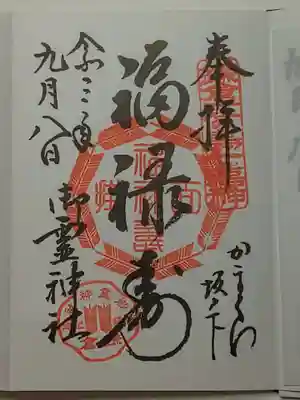 奉拝
かまくら
坂ノ下
福禄寿
令三年
九月八日
御霊神社